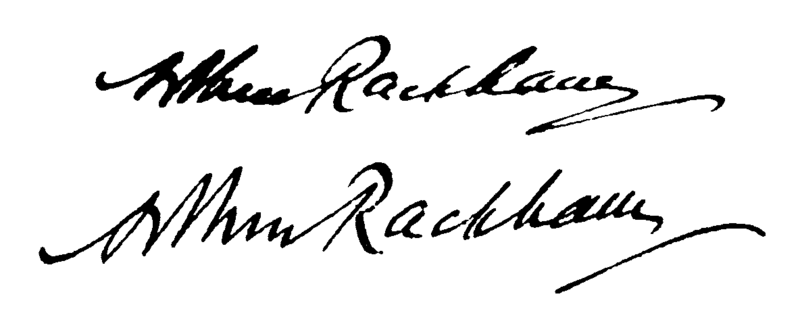 Arthur Rackham
Arthur Rackham